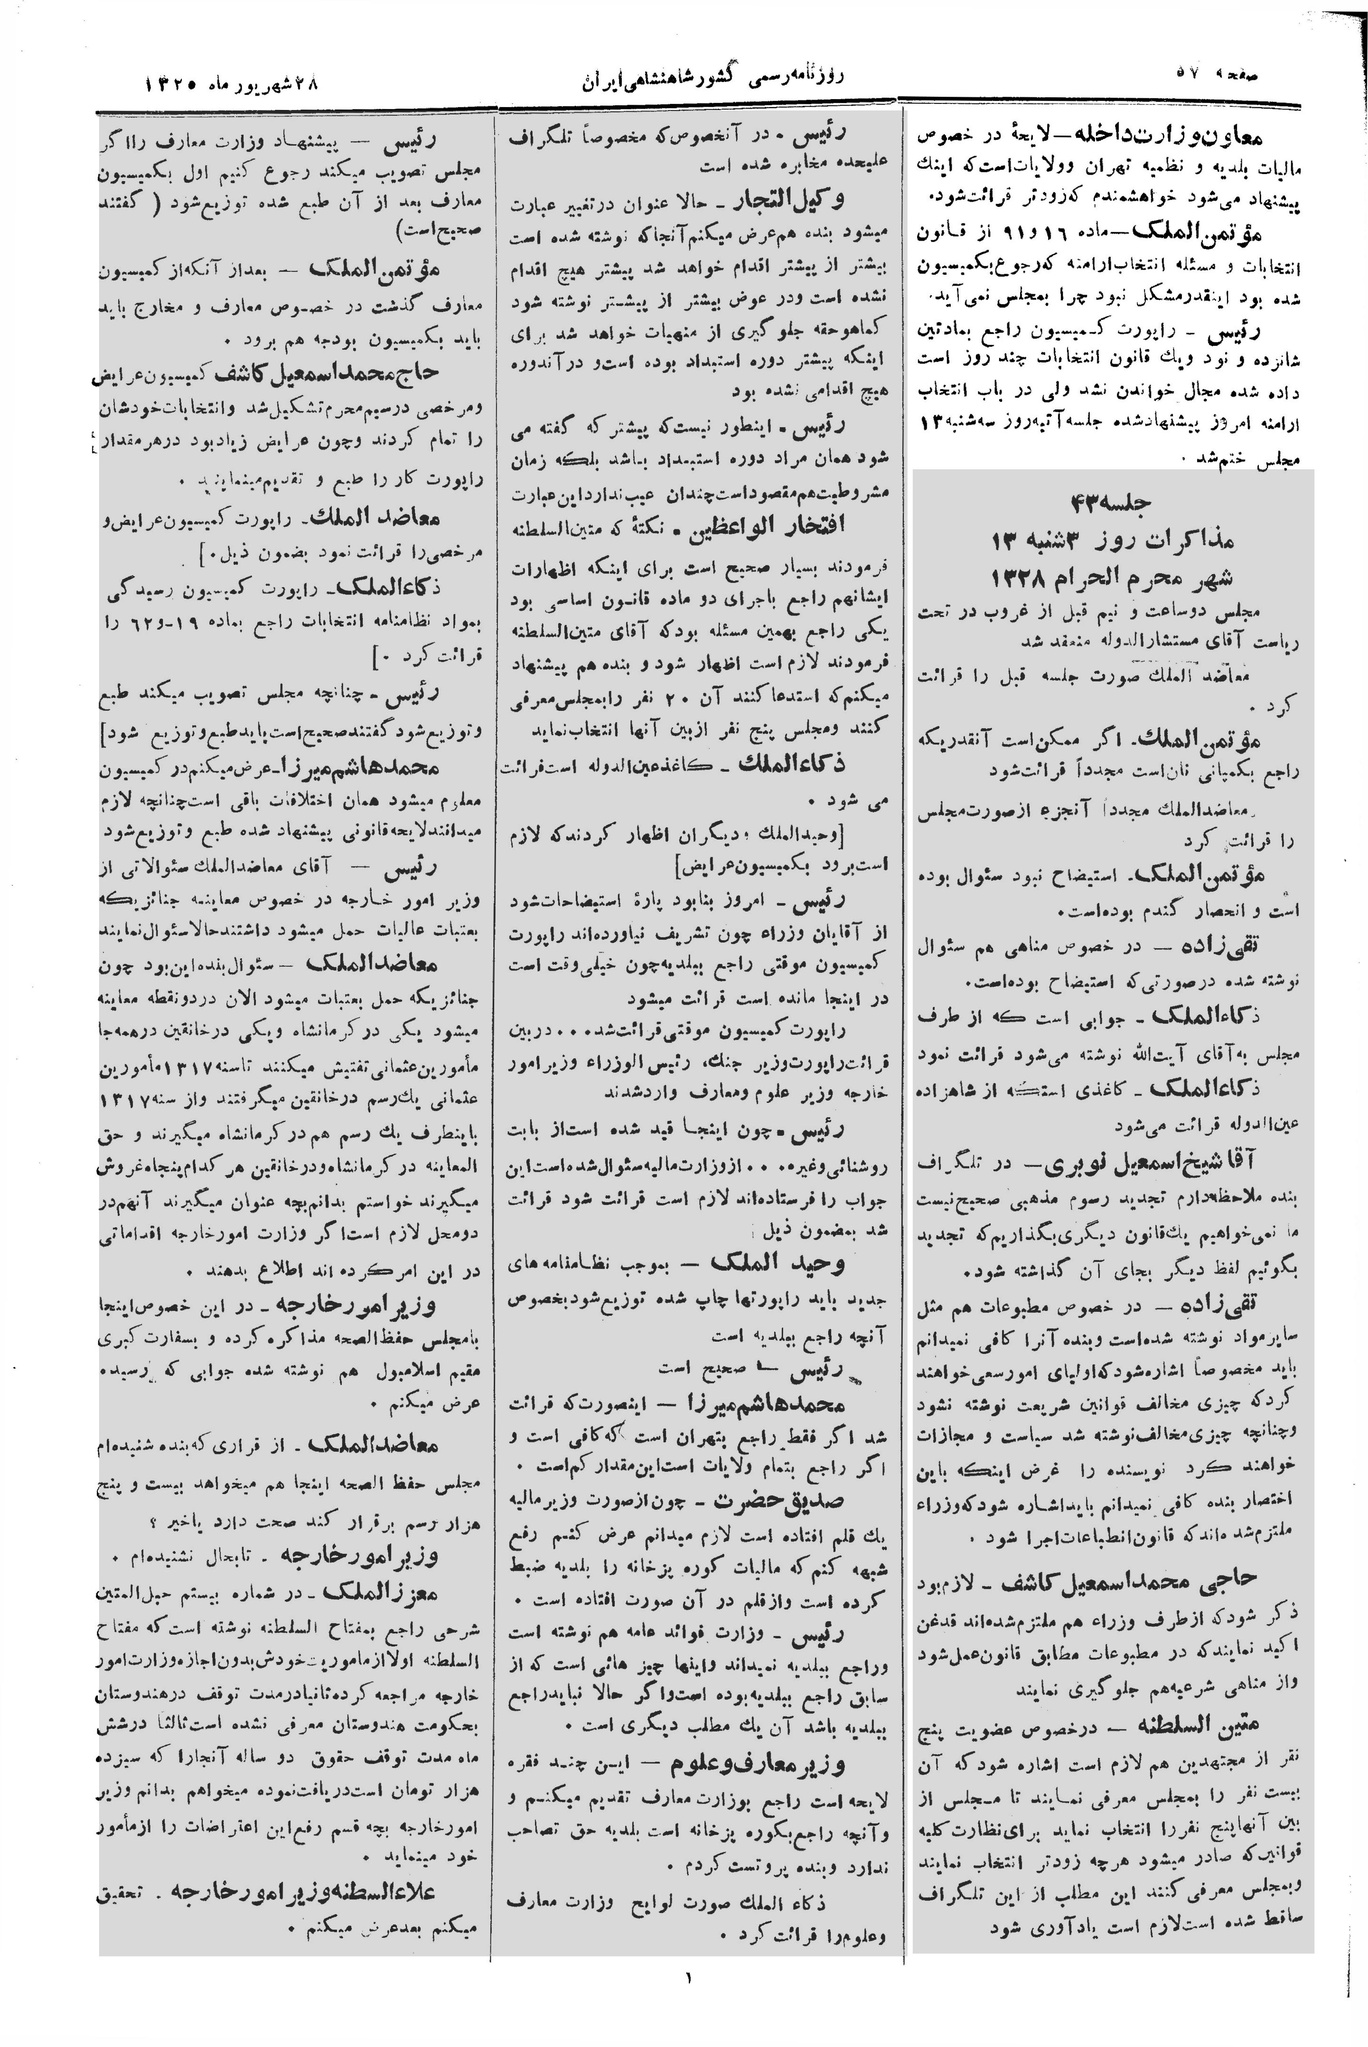 صفحه ۵۷
روزنامه رسمی کشور شاهنشاهی ایران
۲۸ شهریور ماه ۱۳۲۵
معاون وزارت داخله – لایحهٔ در خصوص
مالیات بلدیه و نظمیه تهران و ولایات است که اینك
پیشنهاد می‌شود خواهشمندم که زودتر قرائت شود.
مؤتمن الملك – ماده ۱۶ و ۹۱ از قانون
انتخابات و مسئله انتخاب ارامنه که رجوع بکمیسیون
شده بود اینقدر مشکل نبود چرا بمجلس نمی‌آید.
رئیس – راپورت کمیسیون راجع بمادتین
شانزده و نود و یك قانون انتخابات چند روز است
داده شده مجال خواندن نشد ولی در باب انتخاب
ارامنه امروز پیشنهاد شده جلسه آتیه روز سه‌شنبه ۱۳
مجلس ختم شد .
جلسه ۴۳
مذاکرات روز ۳شنبه ۱۳
شهر محرم الحرام ۱۳۲۸
مجلس دو ساعت و نیم قبل از غروب در تحت
ریاست آقای مستشارالدوله منعقد شد
معاضد الملك صورت جلسه قبل را قرائت
کرد .
مؤتمن الملك . اگر ممکن است آنقدریکه
راجع بکمپانی نان است مجدداً قرائت شود
معاضدالملك مجدداً آنجزء از صورت مجلس
را قرائت کرد
مؤتمن الملك . استیضاح نبود سئوال بوده
است و انحصار گندم بوده‌است.
تقی زاده – در خصوص مناهی هم سئوال
نوشته شده در صورتی که استیضاح بوده‌است.
ذکاءالملك – جوابی است که از طرف
مجلس به آقای آیت‌الله نوشته می‌شود قرائت نمود
ذکاءالملك – کاغذی استکه از شاهزاده
عین‌الدوله قرائت می‌شود
آقا شیخ اسمعیل نوبری – در تلگراف
بنده ملاحظه دارم تجدید رسوم مذهبی صحیح نیست
ما نمی‌خواهیم یك قانون دیگری بگذاریم که تجدید
بگوئیم لفظ دیگر بجای آن گذاشته شود.
تقی زاده – در خصوص مطبوعات هم مثل
سایر مواد نوشته شده‌است و بنده آنرا کافی نمیدانم
باید مخصوصاً اشاره شود که اولیای امور سعی خواهند
کرد که چیزی مخالف قوانین شریعت نوشته نشود
و چنانچه چیزی مخالف نوشته شد سیاست و مجازات
خواهند کرد نویسنده را غرض اینکه باین
اختصار بنده کافی نمیدانم باید اشاره شود که وزراء
ملتزم شده‌اند که قانون انطباعات اجرا شود .
حاجی محمد اسمعیل کاشف – لازم بود
ذکر شود که از طرف وزراء هم ملتزم شده‌اند قدغن
اکید نمایند که در مطبوعات مطابق قانون عمل شود
و از مناهی شرعیه هم جلوگیری نمایند
متین السلطنه – در خصوص عضویت پنج
نفر از مجتهدین هم لازم است اشاره شود که آن
بیست نفر را بمجلس معرفی نمایند تا مجلس از
بین آنها پنج نفر را انتخاب نماید برای نظارت کلیه
قوانین که صادر میشود هرچه زودتر انتخاب نمایند
و بمجلس معرفی کنند این مطلب از این تلگراف
ساقط شده است لازم است یادآوری شود
رئیس – در آنخصوص که مخصوصاً تلگراف
علیحده مخابره شده است
وکیل التجار – حالا عنوان در تغییر عبارت
میشود بنده هم عرض میکنم آنجا که نوشته شده است
بیشتر از پیشتر اقدام خواهد شد پیشتر هیچ اقدام
نشده است و در عوض بیشتر از پیشتر نوشته شود
کماهو حقه جلوگیری از منهیات خواهد شد برای
اینکه پیشتر دوره استبداد بوده است و در آندوره
هیچ اقدامی نشده بود
رئیس – اینطور نیست که پیشتر که گفته می
شود همان مراد دوره استبداد باشد بلکه زمان
مشروطیت هم مقصود است چندان عیب ندارد این عبارت
افتخار الواعظین – نکتهٔ که متین السلطنه
فرمودند بسیار صحیح است برای اینکه اظهارات
ایشانهم راجع باجرای دو ماده قانون اساسی بود
یکی راجع بهمین مسئله بود که آقای متین السلطنه
فرمودند لازم است اظهار شود و بنده هم پیشنهاد
میکنم که استدعا کنند آن ۲۰ نفر را بمجلس معرفی
کنند و مجلس پنج نفر از بین آنها انتخاب نماید
ذکاءالملك – کاغذ عین الدوله است قرائت
می شود .
[وحیدالملك و دیگران اظهار کردند که لازم
است برود بکمیسیون عرایض]
رئیس – امروز بنا بود پارهٔ استیضاحات شود
از آقایان وزراء چون تشریف نیاورده‌اند راپورت
کمیسیون موقتی راجع ببلدیه چون خیلی وقت است
در اینجا مانده است قرائت میشود
راپورت کمیسیون موقتی قرائت شد ... در بین
قرائت راپورت وزیر جنك، رئیس الوزراء وزیر امور
خارجه وزیر علوم و معارف وارد شدند
رئیس – چون اینجا قید شده است از بابت
روشنائی و غیره ... از وزارت مالیه سئوال شده است این
جواب را فرستاده‌اند لازم است قرائت شود قرائت
شد بمضمون ذیل
وحید الملك – بموجب نظامنامه های
جدید باید راپورتها چاپ شده توزیع شود بخصوص
آنچه راجع ببلدیه است
رئیس – صحیح است
محمد هاشم میرزا – اینصورت که قرائت
شد اگر فقط راجع بتهران است که کافی است و
اگر راجع بتمام ولایات است این مقدار کم است .
صدیق حضرت – چون از صورت وزیر مالیه
یك قلم افتاده است لازم میدانم عرض کنم رفع
شبهه کنم که مالیات کوره پزخانه را بلدیه ضبط
کرده است و از قلم در آن صورت افتاده است .
رئیس – وزارت فوائد عامه هم نوشته است
و راجع ببلدیه نمیداند و اینها چیز هائی است که از
سابق راجع ببلدیه بوده است و اگر حالا نباید راجع
ببلدیه باشد آن یك مطلب دیگری است .
وزیر معارف و علوم – این چند فقره
لایحه است راجع بوزارت معارف تقدیم میکنم و
و آنچه راجع بکوره پزخانه است بلدیه حق تصاحب
ندارد و بنده پروتست کردم .
ذکاء الملك صورت لوایح وزارت معارف
و علوم را قرائت کرد .
رئیس – پیشنهاد وزارت معارف را اگر
مجلس تصویب میکند رجوع کنیم اول بکمیسیون
معارف بعد از آن طبع شده توزیع شود ( گفتند
صحیح است)
مؤتمن الملك – بعد از آنکه از کمیسیون
معارف گذشت در خصوص معارف و مخارج باید
باید بکمیسیون بودجه هم برود .
حاج محمد اسمعیل کاشف کمیسیون عرایض
و مرخصی در سیم محرم تشکیل شد و انتخابات خودشان
را تمام کردند و چون عرایض زیاد بود در هر مقدار
راپورت کار را طبع و تقدیم مینمایند .
معاضد الملك – راپورت کمیسیون عرایض و
مرخصی را قرائت نمود بضمون ذیل .]
ذکاءالملك – راپورت کمیسیون رسیدگی
بمواد نظامنامه انتخابات راجع بماده ۱۹-و۶۲ را
قرائت کرد .]
رئیس – چنانچه مجلس تصویب میکند طبع
و توزیع شود گفتند صحیح است باید طبع و توزیع شود]
محمد هاشم میرزا – عرض میکنم در کمیسیون
معلوم میشود همان اختلافات باقی است چنانچه لازم
میدانند لایحه قانونی پیشنهاد شده طبع و توزیع شود
رئیس – آقای معاضدالملك سئوالاتی از
وزیر امور خارجه در خصوص معاینه جنائزیکه
بعتبات عالیات حمل میشود داشتند حالا سئوال نمایند
معاضد الملك – سئوال بنده این بود چون
جنائزیکه حمل بعتبات میشود الان در دو نقطه معاینه
میشود یکی در کرمانشاه و یکی در خانقین در همه جا
مأمورین عثمانی تفتیش میکنند تا سنه ۱۳۱۷ مأمورین
عثمانی یك رسم در خانقین میگرفتند و از سنه ۱۳۱۷
باینطرف یك رسم هم در کرمانشاه میگیرند و حق
المعاینه در کرمانشاه و در خانقین هر کدام پنجاه غروش
میگیرند خواستم بدانم بچه عنوان میگیرند آنهم در
دو محل لازم است اگر وزارت امور خارجه اقداماتی
در این امر کرده اند اطلاع بدهند .
وزیر امور خارجه – در این خصوص اینجا
بامجلس حفظ الصحه مذاکره کرده و بسفارت کبری
مقیم اسلامبول هم نوشته شده جوابی که رسیده
عرض میکنم .
معاضد الملك – از قراری که بنده شنیده‌ام
مجلس حفظ الصحه اینجا هم میخواهد بیست و پنج
هزار رسم برقرار کند صحت دارد یاخیر ؟
وزیر امور خارجه – تا بحال نشنیده‌ام .
معزز الملك – در شماره بیستم حبل المتین
شرحی راجع بمفتاح السلطنه نوشته است که مفتاح
السلطنه اولا از ماموریت خودش بدون اجازه وزارت امور
خارجه مراجعه کرده ثانیا در مدت توقف در هندوستان
بحکومت هندوستان معرفی نشده است ثالثا در شش
ماه مدت توقف حقوق دو ساله آنجارا که سیزده
هزار تومان است دریافت نموده میخواهم بدانم وزیر
امور خارجه بچه قسم رفع این اعتراضات را از مأمور
خود مینماید .
علاء السلطنه وزیر امور خارجه . تحقیق
میکنم بعد عرض میکنم .
۱